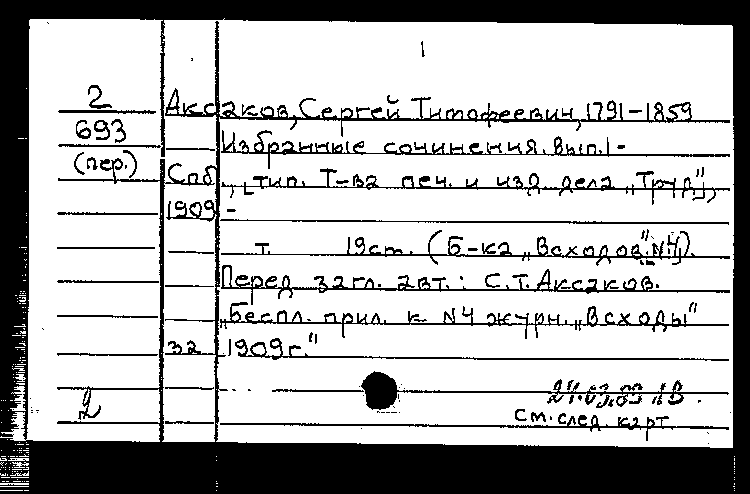 1
2 Аксаков, Сергей Тимофеевич, 1791-1859
693 Избранные сочинения. Вып.1 -
(пер.) Спб., [тип. Т-ва печ. и изд. дела „Труд"],
1909 -
т. 19 cm. (Б-ка „Всходов" [№4]).
Перед загл. авт.: С.Т. Аксаков.
„Беспл. прил. к №4 журн. „Всходы"
за 1909 г."
2
См. след. карт.